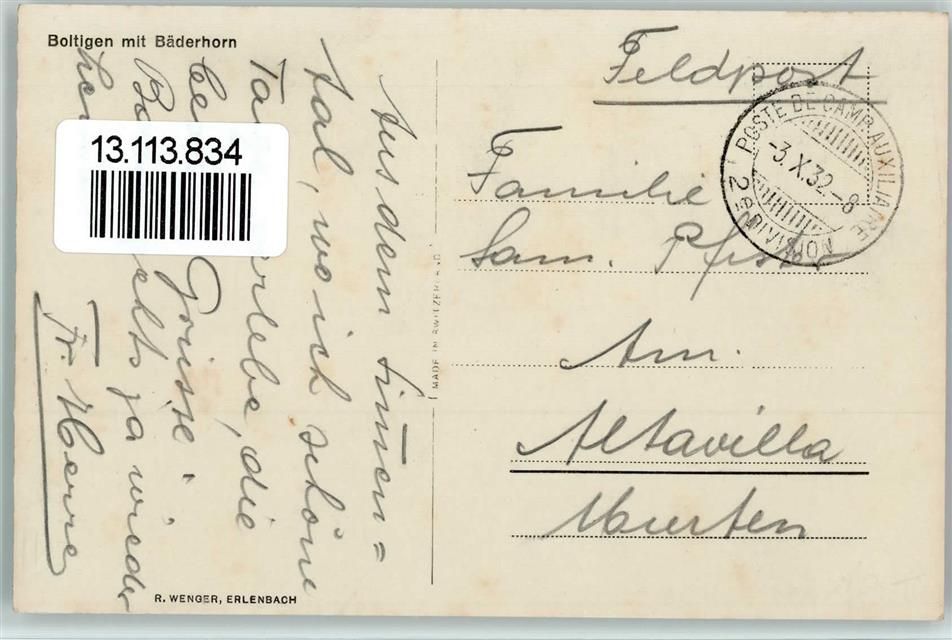 Boltigen mit Bäderhorn
Aus dem Simmen=
tal, wo ich schöne
Ta erlebe, die
be Grüsse
Ba ja wieder
Fr. Herren
13.113.834
MADE IN SWITZERLAND
R. WENGER, ERLENBACH
Feldpost
POSTE DE CAMP. AUXILIAIRE
-3.X.32.-8
2e DIVISION
Familie
Sam. Pfister
Am.
Altavilla
Murten